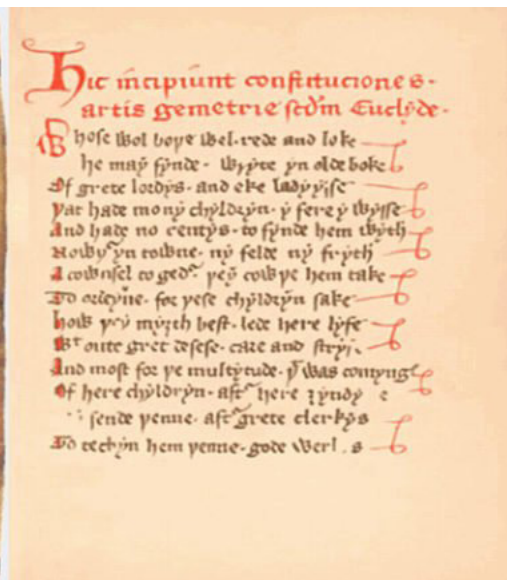 Hic incipiunt constituciones
artis gemetrie scdm Euclyde.
Whose wol boþe wel rede and loke
he may fynde wryte yn olde boke
Of grete lordys and eke ladyysse
þat hade mony chyldryn y fere y wysse
And hade no rentys to fynde hem wyth
Nowþ yn towne ny felde ny fryth
A cownsel to ged þey cowþe hem take
To ordeyne for þese chyldryn sake
how þey myȝth best lede here lyfe
Wt oute gret desese care and
And most for þe multytude þt was
Of here chyldryn aft here
sende þenne aft grete clerkys
To techyn hem þenne gode